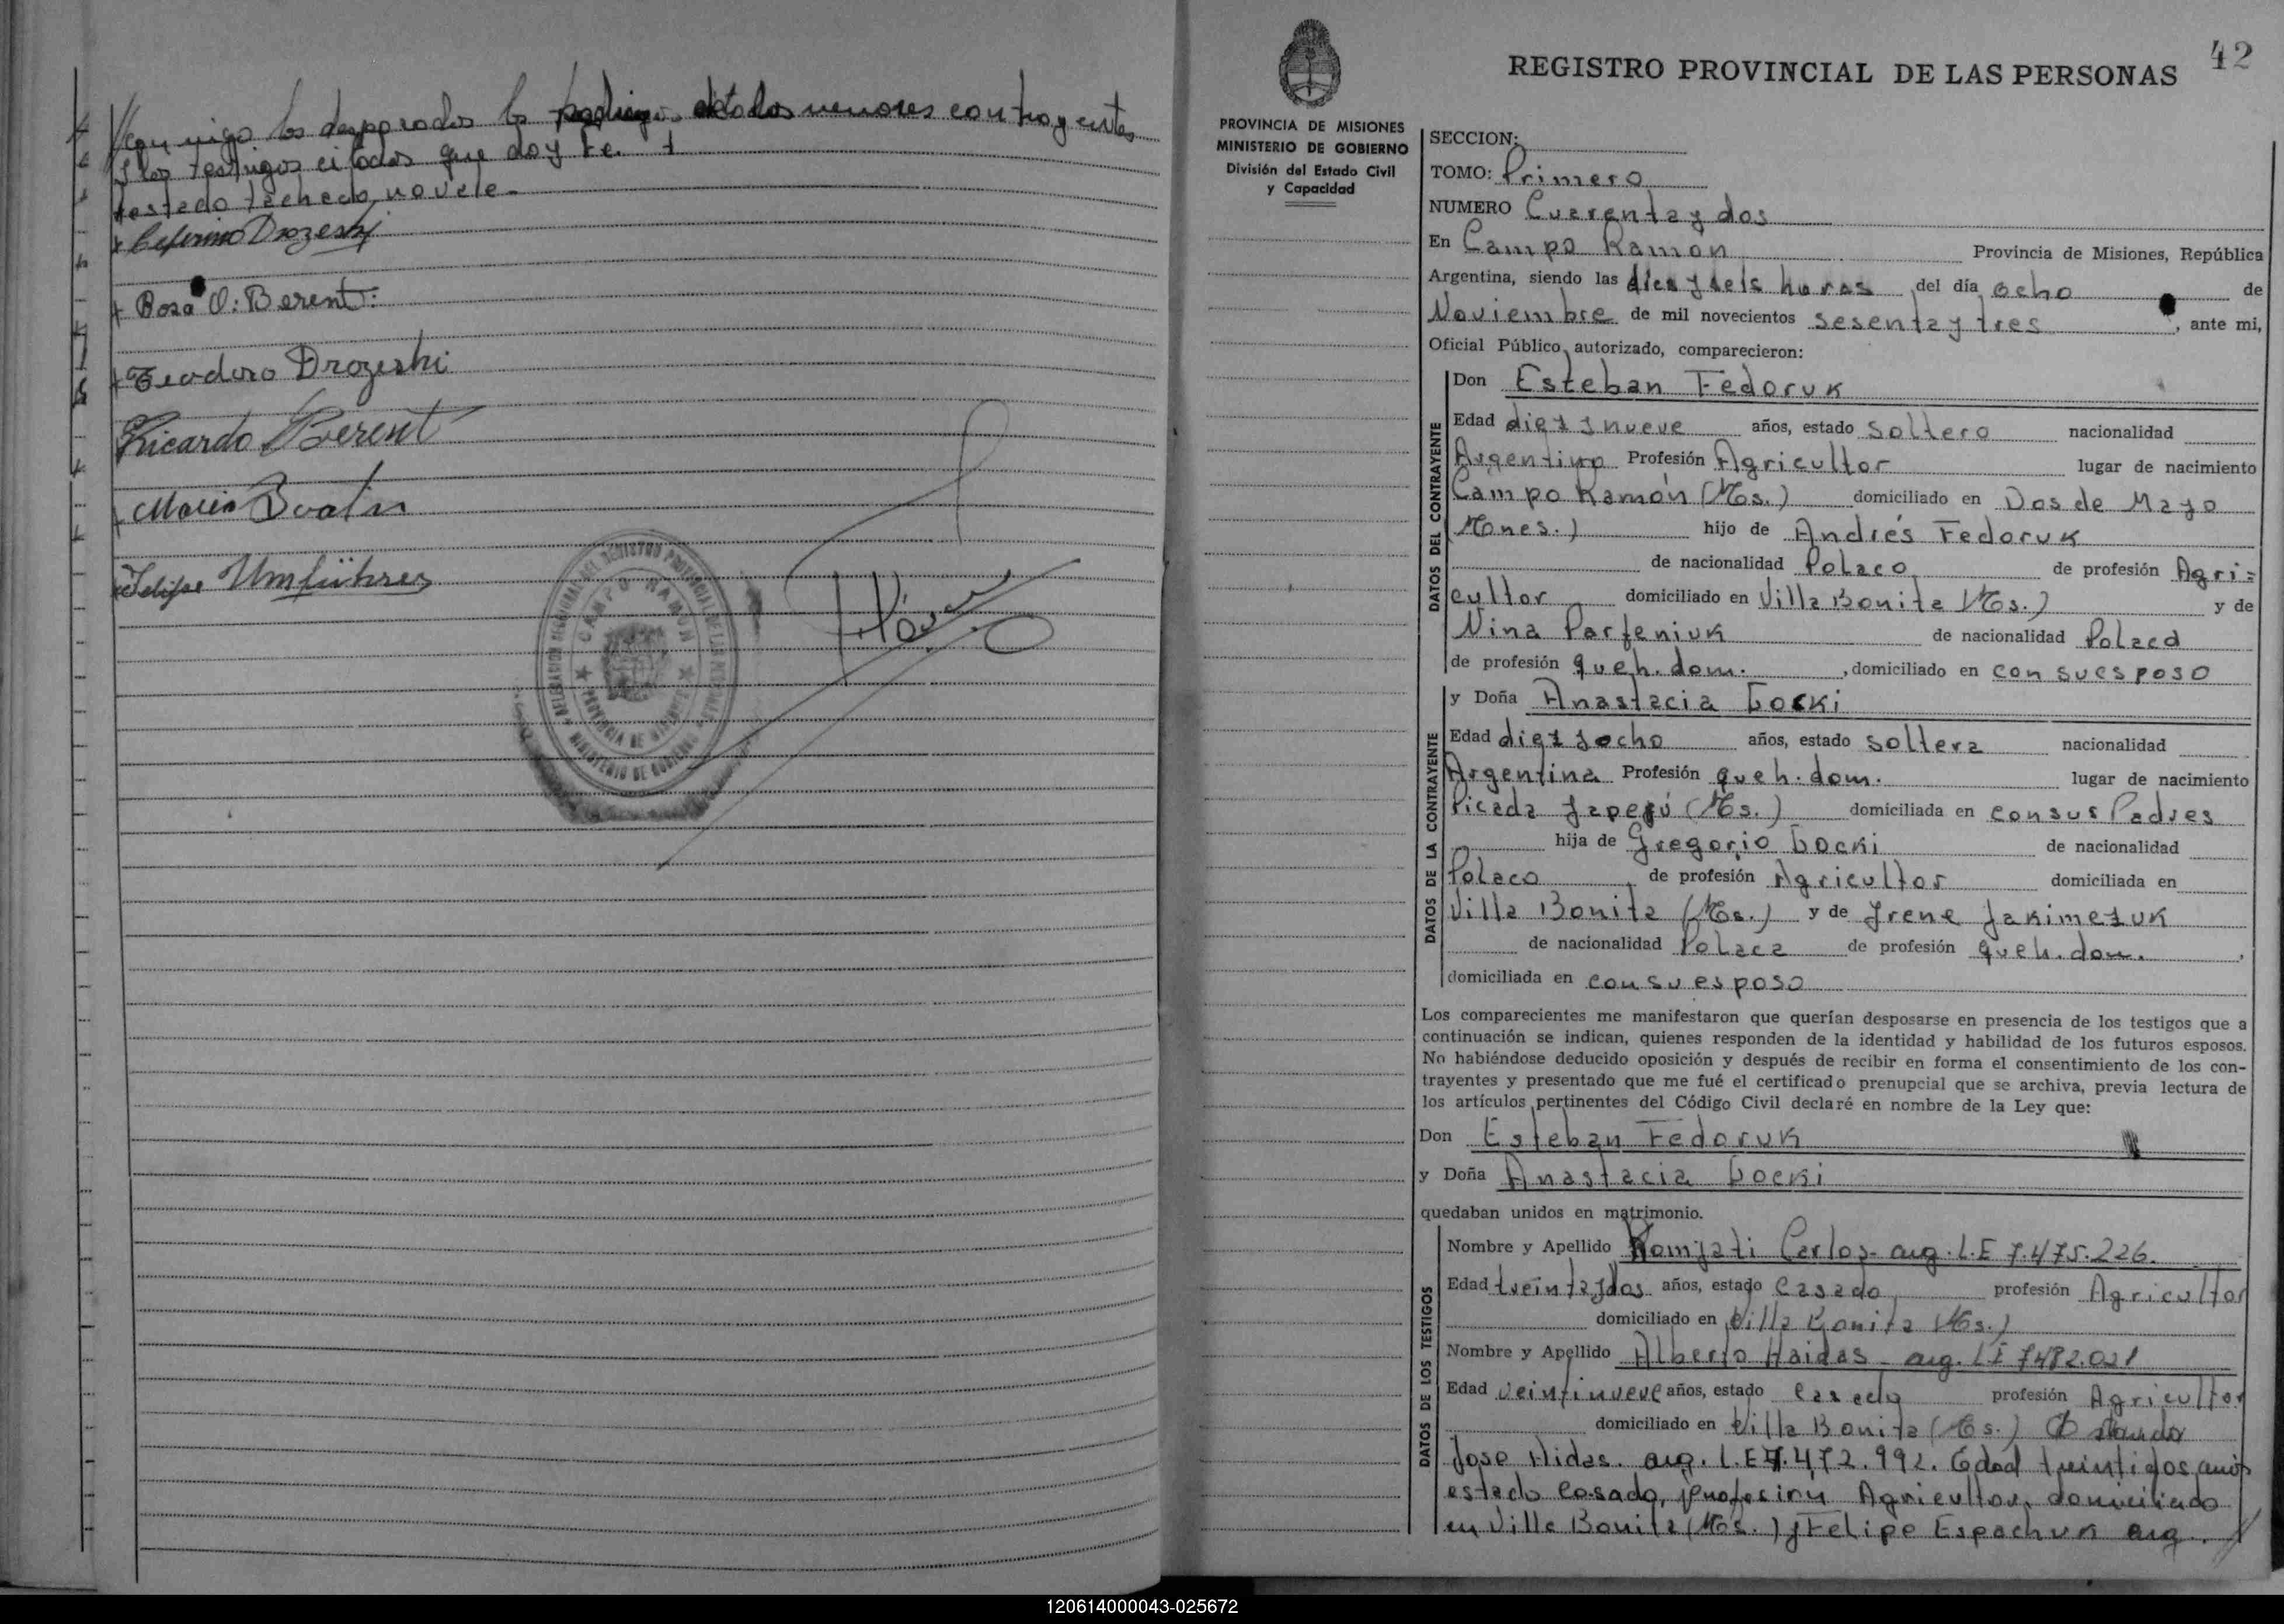 conmigo los desposados los padres de los menores contrayentes
y los testigos citados que doy fe.
testado tachado no vale-
Ceferino Drozeski
Rosa O: Berent:
Teodoro Drozeski
Ricardo Berent
Felipe Umführer
DELEGACION REGIONAL DEL REGISTRO PROVINCIAL DE LAS PERSONAS
CAMPO RAMON
PROVINCIA DE MISIONES
MINISTERIO DE GOBIERNO
42
REGISTRO PROVINCIAL DE LAS PERSONAS
PROVINCIA DE MISIONES
MINISTERIO DE GOBIERNO
División del Estado Civil
y Capacidad
SECCION:
TOMO: Primero
NUMERO Cuarenta y dos
En Campo Ramon Provincia de Misiones, República
Argentina, siendo las diez y seis horas del día ocho de
Noviembre de mil novecientos sesenta y tres, ante mi,
Oficial Público autorizado, comparecieron:
DATOS DEL CONTRAYENTE
Don Esteban Fedoruk
Edad diez y nueve años, estado soltero nacionalidad
Argentino Profesión Agricultor lugar de nacimiento
Campo Ramón (Ms.) domiciliado en Dos de Mayo
(Mones.) hijo de Andrés Fedoruk
de nacionalidad Polaco de profesión Agri=
cultor domiciliado en Villa Bonita (Ms.) y de
Nina Parfeniuk de nacionalidad Polaca
de profesión queh. dom., domiciliado en con su esposo
DATOS DE LA CONTRAYENTE
y Doña Anastacia Gocki
Edad diez y ocho años, estado soltera nacionalidad
Argentina Profesión queh. dom. lugar de nacimiento
Picada Yapeyú (Ms.) domiciliada en con sus Padres
hija de Gregorio Gocki de nacionalidad
Polaco de profesión Agricultor domiciliada en
Villa Bonita (Ms.) y de Irene Jakimezuk
de nacionalidad Polaca de profesión queh. dom.,
domiciliada en con su esposo
Los comparecientes me manifestaron que querían desposarse en presencia de los testigos que a
continuación se indican, quienes responden de la identidad y habilidad de los futuros esposos.
No habiéndose deducido oposición y después de recibir en forma el consentimiento de los con-
trayentes y presentado que me fué el certificado prenupcial que se archiva, previa lectura de
los artículos pertinentes del Código Civil declaré en nombre de la Ley que:
Don Esteban Fedoruk
y Doña Anastacia Gocki
quedaban unidos en matrimonio.
DATOS DE LOS TESTIGOS
Nombre y Apellido Carlos- arg. L.E 7.475.226.
Edad treinta y dos años, estado casado profesión Agricultor
domiciliado en Villa Bonita (Ms.)
Nombre y Apellido Alberto Haidas- arg. L.E 7482.021
Edad veintinueve años, estado casado profesión Agricultor
domiciliado en Villa Bonita (Ms.)
Jose Hidas. arg. L.E 7.472.992. Edad treintidos años
estado casado, profesión Agricultor, domiciliado
en Villa Bonita (Ms.) y Felipe Espachuk arg. //
120614000043-025672